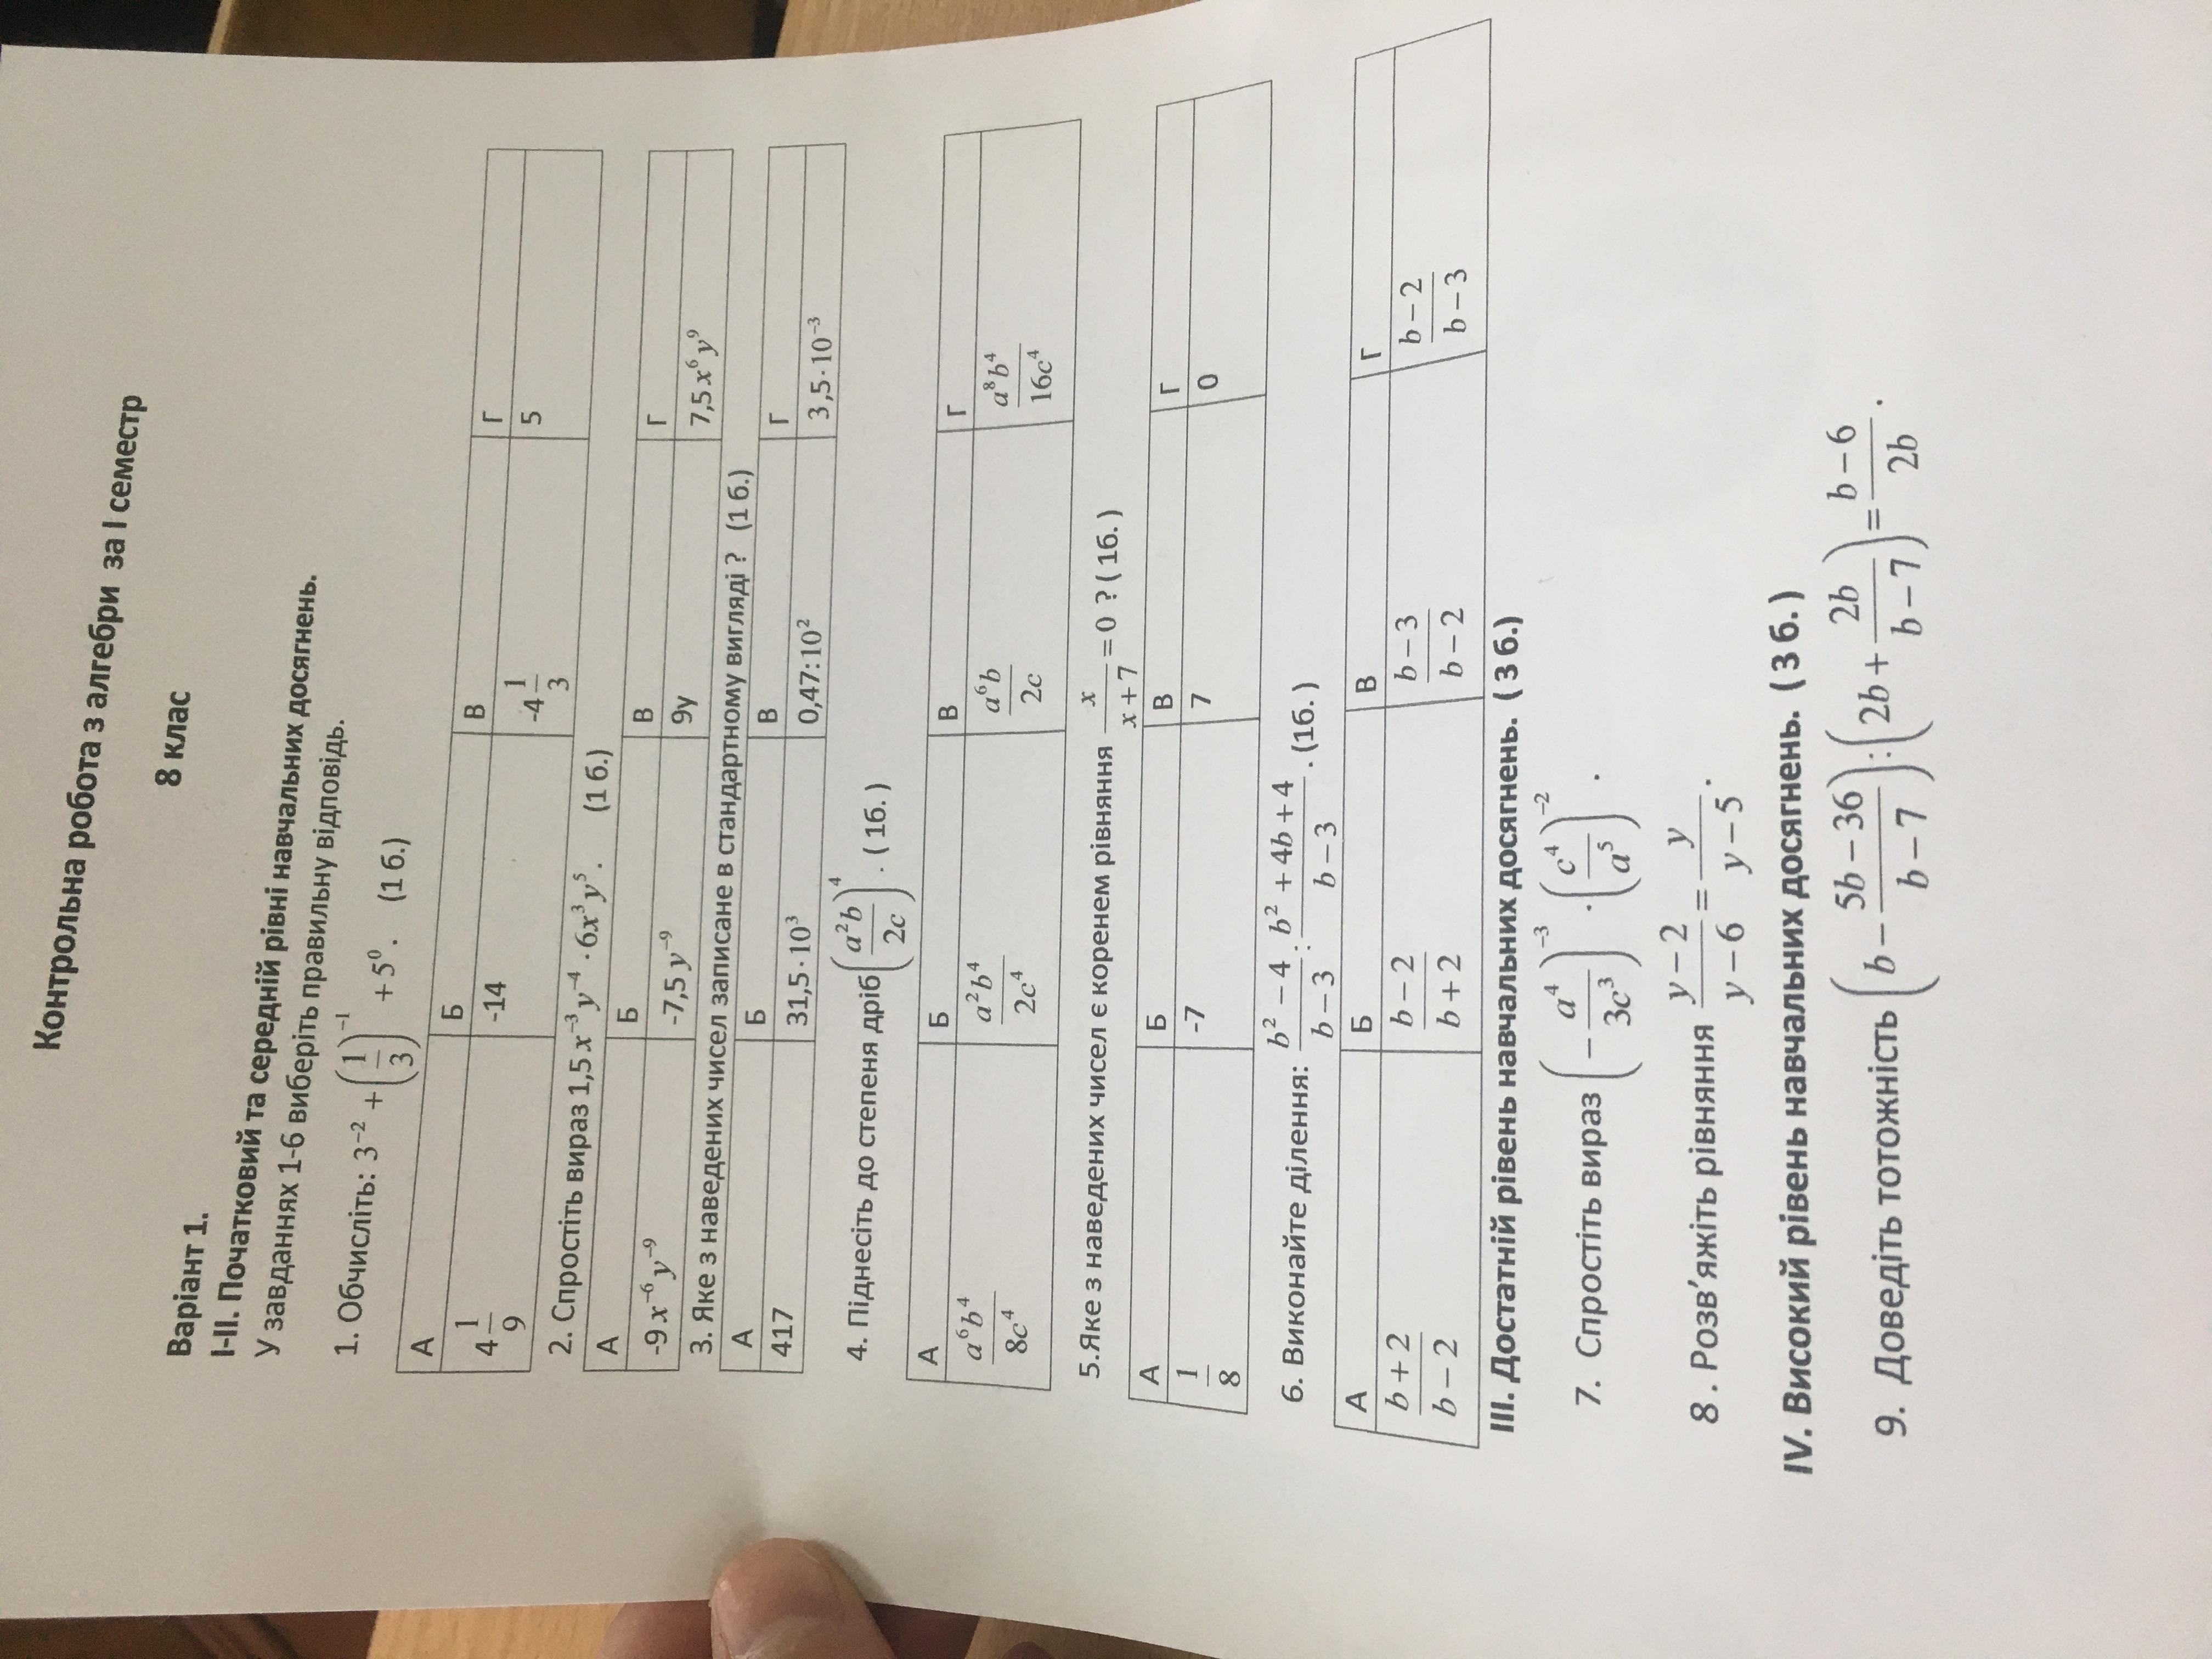 Контрольна робота з алгебри за І семестр
8 клас
Варіант 1.
І-ІІ. Початковий та середній рівні навчальних досягнень.
У завданнях 1-6 виберіть правильну відповідь.
1. Обчисліть: 3⁻² + (1/3)⁻¹ + 5⁰. (1 б.)
А Б В Г
4 1/9 -14 -4 1/3 5
2. Спростіть вираз 1,5x⁻³y⁻⁴ · 6x³y⁵. (1 б.)
А Б В Г
-9x⁻⁶y⁻⁹ -7,5y⁻⁹ 9y 7,5x⁶y⁹
3. Яке з наведених чисел записане в стандартному вигляді ? (1 б.)
А Б В Г
417 31,5·10³ 0,47:10² 3,5·10⁻³
4. Піднесіть до степеня дріб (a²b/2c)⁴. (1б.)
А Б В Г
a⁶b⁴/8c⁴ a²b⁴/2c⁴ a⁶b/2c a⁸b⁴/16c⁴
5.Яке з наведених чисел є коренем рівняння x/(x+7) = 0 ? (1б.)
А Б В Г
1/8 -7 7 0
6. Виконайте ділення: (b²−4)/(b−3) : (b²+4b+4)/(b−3). (1б.)
А Б В Г
(b+2)/(b−2) (b−2)/(b+2) (b−3)/(b−2) (b−2)/(b−3)
ІІІ. Достатній рівень навчальних досягнень. (3 б.)
7. Спростіть вираз (−a⁴/3c³)⁻³ · (c⁴/a⁵)⁻².
8. Розв’яжіть рівняння (y−2)/(y−6) = y/(y−5).
IV. Високий рівень навчальних досягнень. (3 б.)
9. Доведіть тотожність (b − (5b−36)/(b−7)) : (2b + 2b/(b−7)) = (b−6)/2b.